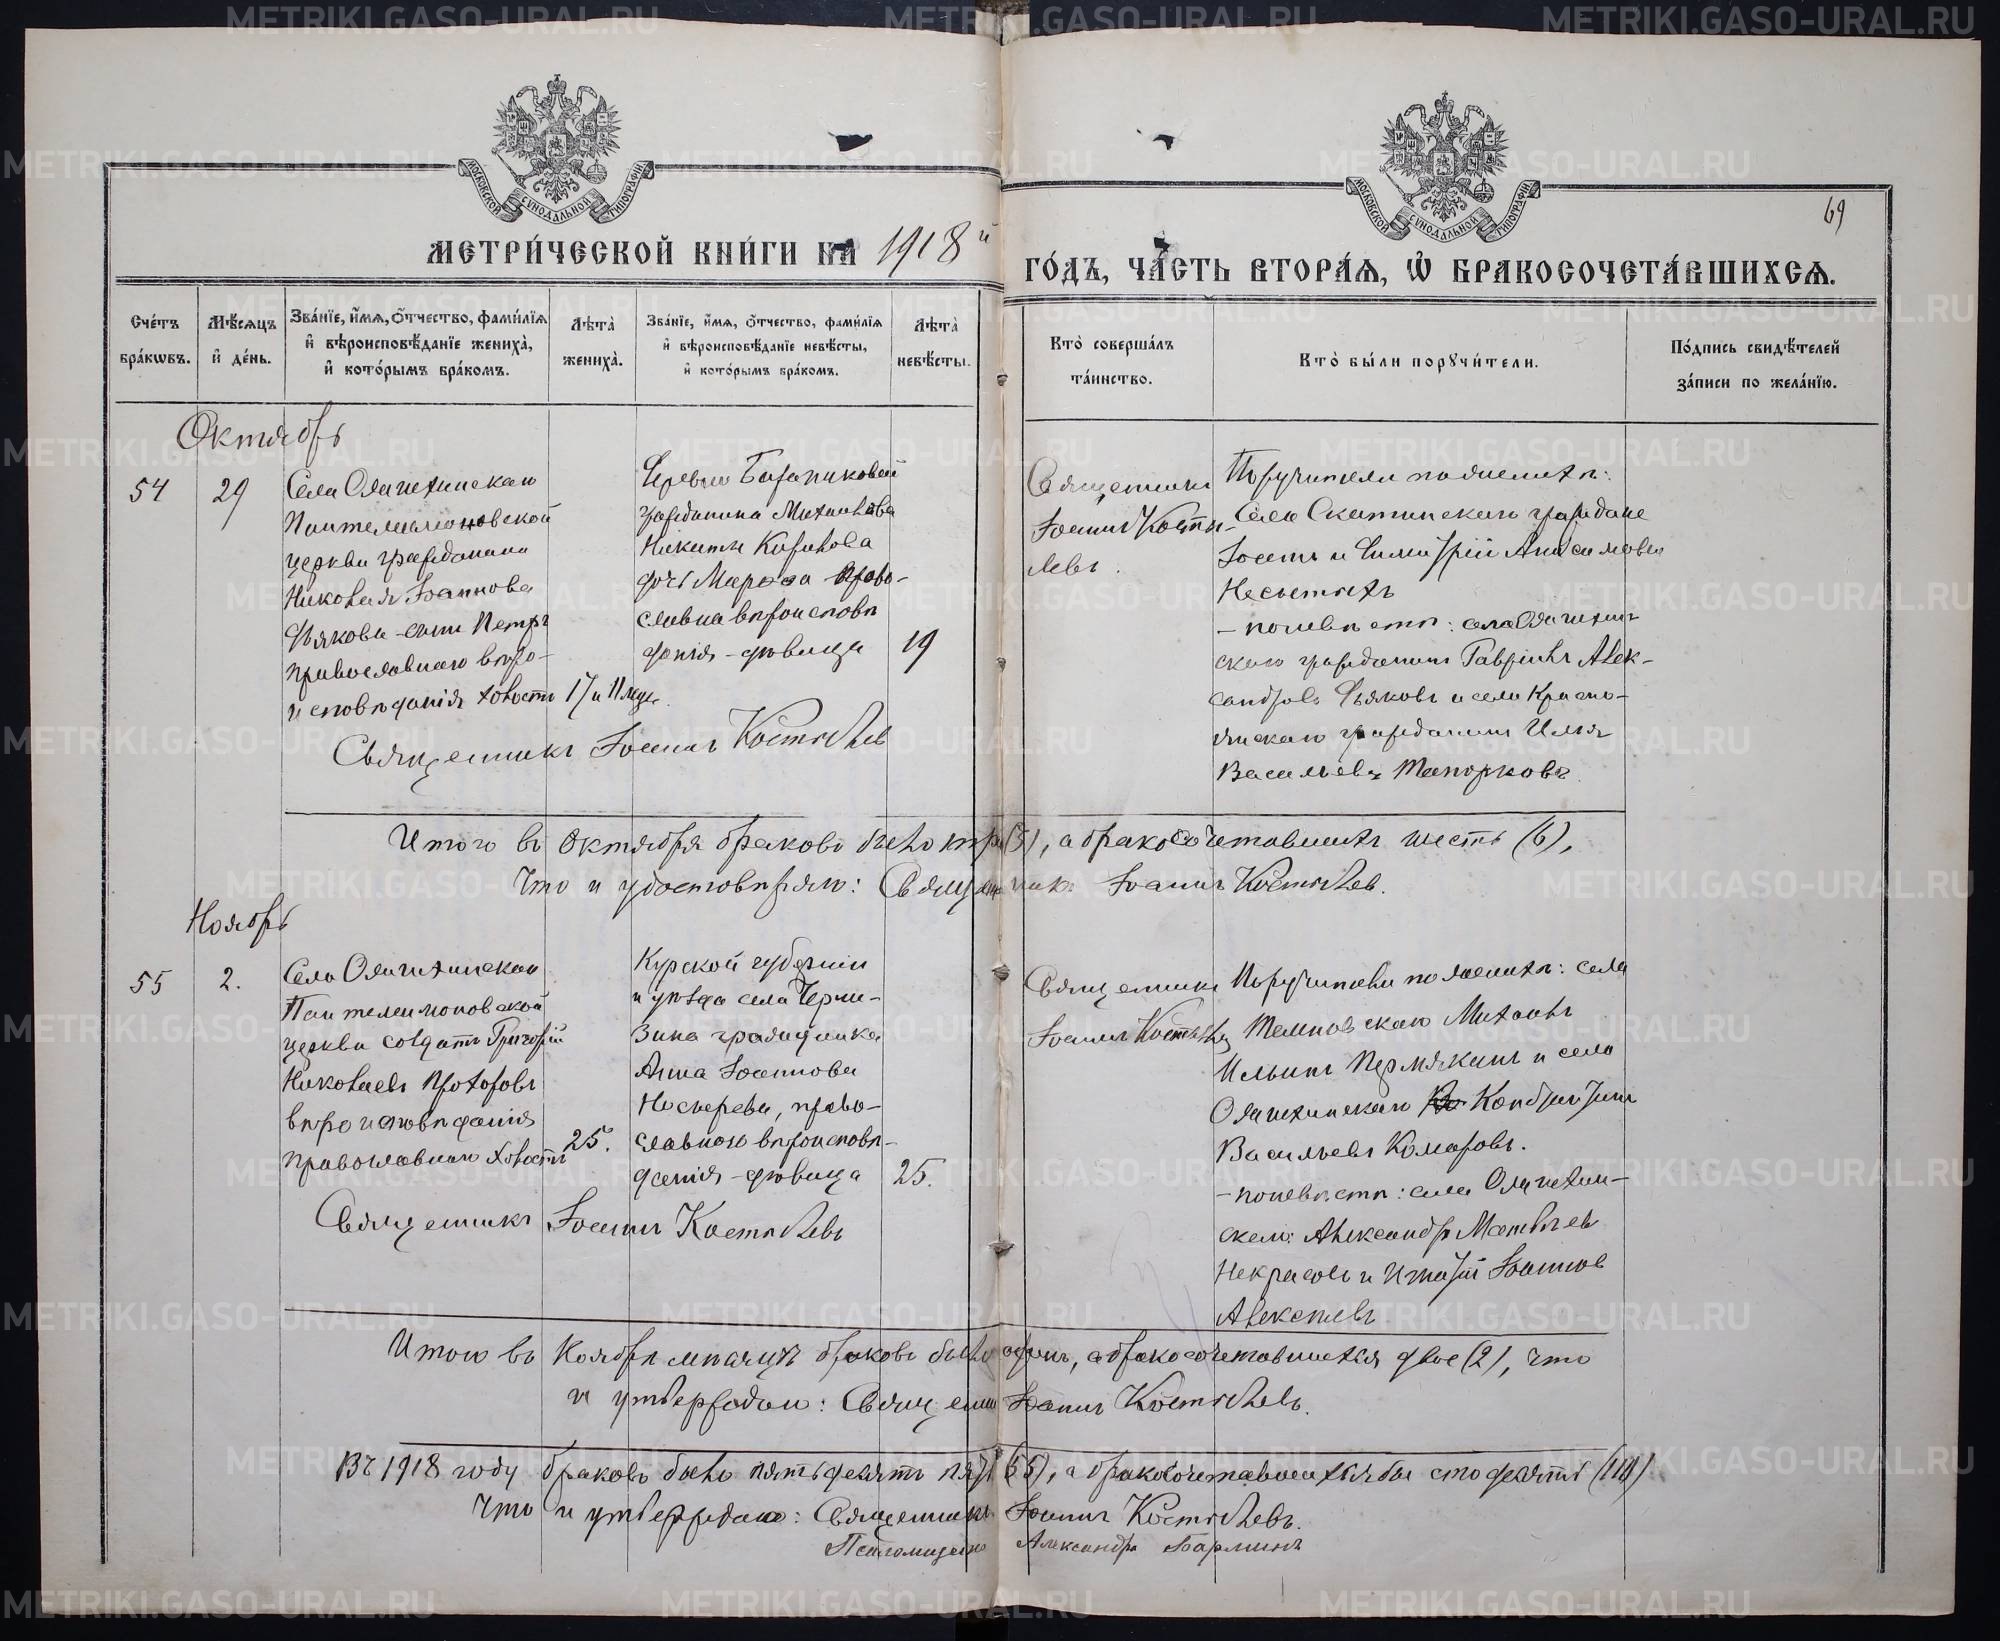 МЕТРИ́ЧЕСКОЙ КНИ́ГИ НА 1918й
ГО́ДЪ, ЧА́СТЬ ВТОРА́Ѧ, Ѽ БРАКОСОЧЕТА́ВШИХСѦ.
69
Сче́тъ бра́кѡвъ.
Мѣ́сѧцъ и҆ де́нь.
Зва́нїе, и҆́мѧ, ѻ҆́тчество, фами́лїѧ и҆ вѣроисповѣ́данїе жениха̀, и҆ кото́рымъ бра́комъ.
Лѣта̀ жениха̀.
Зва́нїе, и҆́мѧ, ѻ҆́тчество, фами́лїѧ и҆ вѣроисповѣ́данїе невѣ́сты, и҆ кото́рымъ бра́комъ.
Лѣта̀ невѣ́сты.
Кто̀ соверша́лъ та́инство.
Кто̀ бы́ли порꙋчи́тели.
По́дпись свидѣ́телей за́писи по жела́нїю.
Октябрь
54
29
Села
Пантелеимоновской
церкви гражданина
Николая Іоаннова
Дьякова - сынъ Петръ
православнаго веро-
исповѣданія холостъ
17 и 11 мец.
Деревни
гражданина Михайлова
Никиты Кирилова
дочь право-
славна вѣроисповѣ
данія - дѣвица
19
Священникъ
Іоаннъ Косты-
левъ.
Поручители по женихѣ:
Села Скатинскаго граждане
и Димитрій Анисимовы
- по невѣстѣ: села
скаго гражданинъ Гавріилъ Алек-
сандровъ Дьяковъ и села Красно-
гражданинъ Илья
Васильевъ Топорковъ.
Священникъ Іоаннъ Костылев
Итого въ Октябрѣ браковъ было три (3), а бракосочетавшихъ шесть (6),
что и удостовѣряю: Священникъ Іоаннъ Костылев.
Ноябрь
55
2.
Села
Пантелеимоновской
церкви солдатъ Григорій
Николаевъ Прохоровъ
вѣроисповѣданія
православнаго холостъ
25.
Курской губерніи
и уѣзда села
гражданка
Анна Іоаннова
право-
славного вѣроисповѣ-
данія - дѣвица
25.
Священникъ
Іоаннъ Костылевъ
Поручители по женихѣ: села
Темновскаго Михаилъ
Ильинъ Пермякинъ и села
Васильевъ Комаровъ.
- по невѣстѣ: села
скаго: Александръ Матвѣевъ
Некрасовъ и Іоаннов
Алексѣевъ
Священникъ Іоаннъ Костылевъ
Итого въ Ноябрѣ мѣсяцѣ браковъ было одинъ, а бракосочетавшихся двое (2), что
и утверждаю: Священникъ Іоаннъ Костылевъ.
Въ 1918 году браковъ было пятьдесятъ пять (55), а бракосочетавшихся бы сто десять (110)
что и утверждаю: Священникъ Іоаннъ Костылевъ.
Псаломщикъ Александръ
METRIKI.GASO-URAL.RU